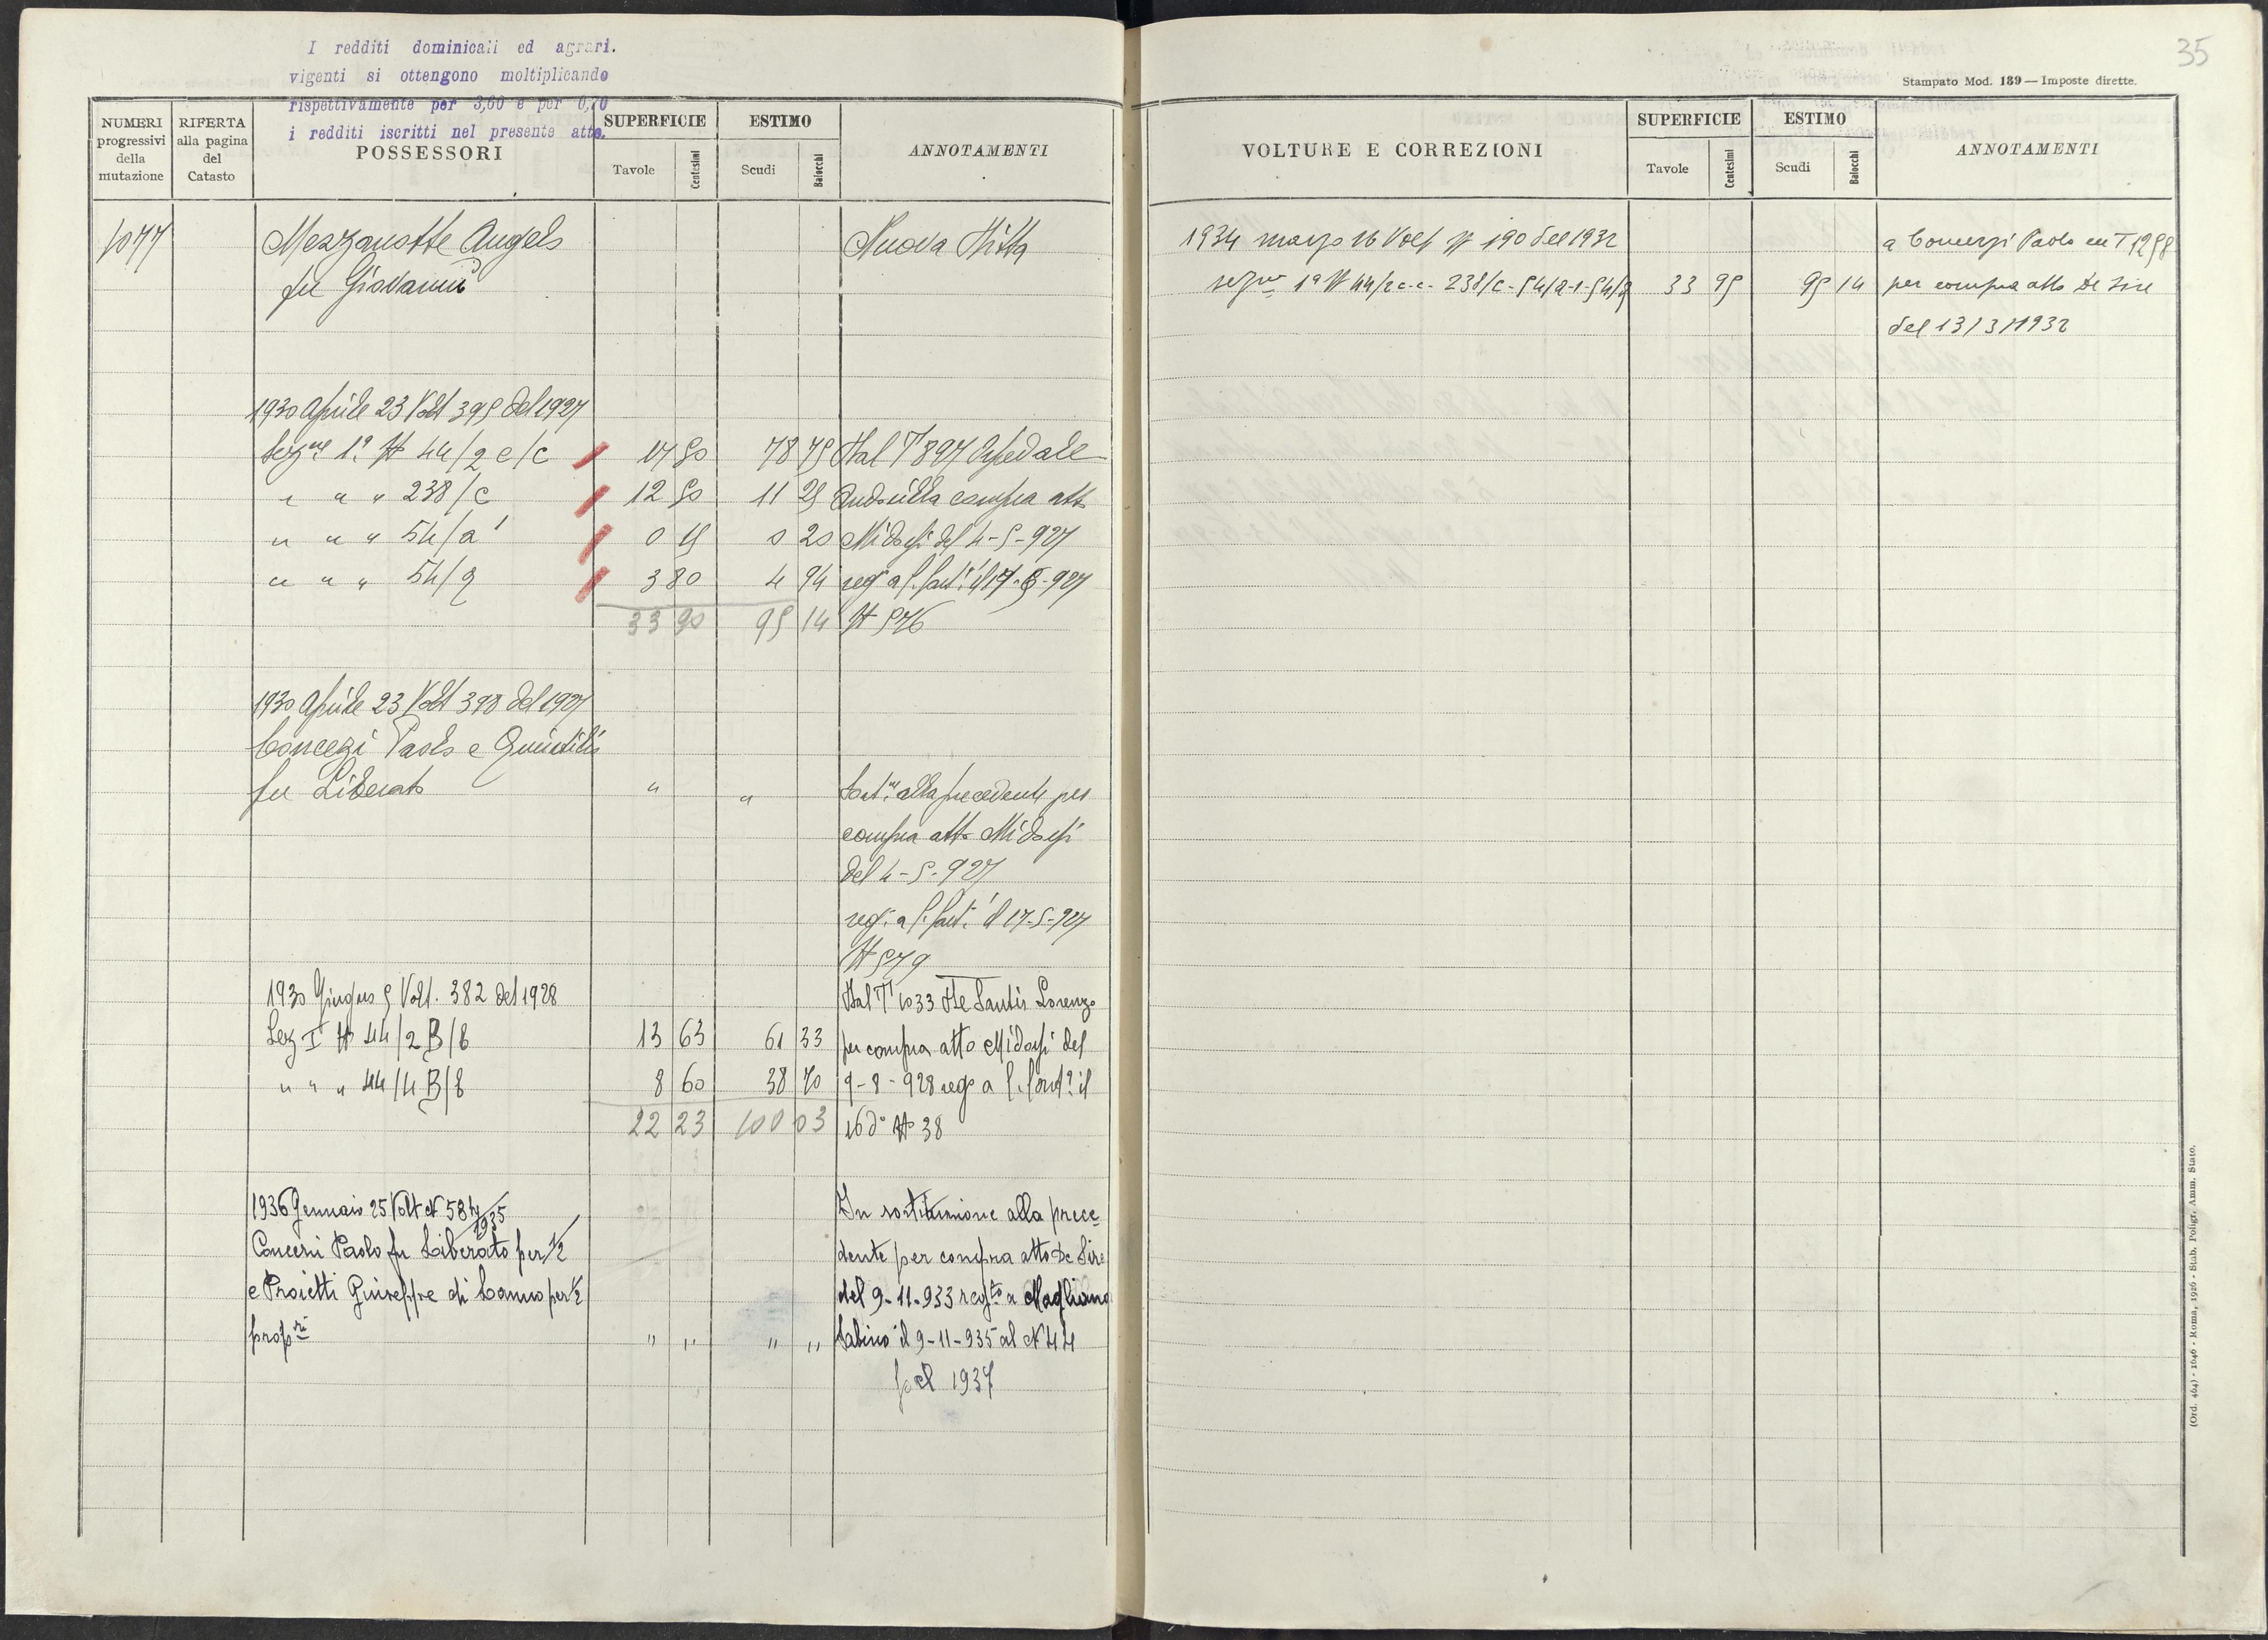 I redditi dominicali ed agrari.
vigenti si ottengono moltiplicando
rispettivamente per 3,60 e per 0,70
i redditi iscritti nel presente atto.
NUMERI progressivi della mutazione
RIFERTA alla pagina del Catasto
POSSESSORI
SUPERFICIE
Tavole
Centesimi
ESTIMO
Scudi
Baiocchi
ANNOTAMENTI
1077
Mezzanotte Angelo
Nuova Ditta
fu Giovanni
1930 Aprile 23 Volt 395 del 1927
Sez.ne 1ª N 44/2 c/c 17 50 78 75 Dal T 897 Ospedale
" " " 238/c 12 50 11 25 compra atto
" " " 54/a 1 0 15 0 20 Midossi del 4-5-927
" " " 54/2 3 80 4 94 reg a C. Cast. il 17-5-927
33 90 95 14 N 576
1930 Aprile 23 Volt 398 del 1927
Concezi Paolo e Quintilio
fu Liberato " " Sost. alla precedente per
compra atto Midossi
del 4-5-927
reg. a C. Cast. il 17-5-927
N 579
1930 Giugno 5 Volt. 382 del 1928 Dal T 1033 De Santis Lorenzo
Sez I N 44/2 B/8 13 63 61 33 per compra atto Midossi del
" " " 44/4 B/8 8 60 38 70 9-8-928 reg a C. il
22 23 100 03 16 do N 38
1936 Gennaio 25 Volt N 58 1935 In sostituzione alla prece-
Paolo fu Liberato per 1/2 dente per compra atto De Sire
e Proietti Giuseppe di per 1/2 del 9-11-933 reg.to a Magliano
prop.ri " " " " Sabino il 9-11-935 al N 44
1937
35
Stampato Mod. 139 — Imposte dirette.
VOLTURE E CORREZIONI
SUPERFICIE
Tavole
Centesimi
ESTIMO
Scudi
Baiocchi
ANNOTAMENTI
1934 marzo 16 Volt N 190 del 1932 a Concezzi Paolo T 1298
1ª N 44/2 c-c- 238/c-54/a-1-54/2 33 95 95 14 per compra atto De Sire
del 13/3/1932
(Ord. 464) - 1646 - Roma, 1926 - Stab. Poligr. Amm. Stato.